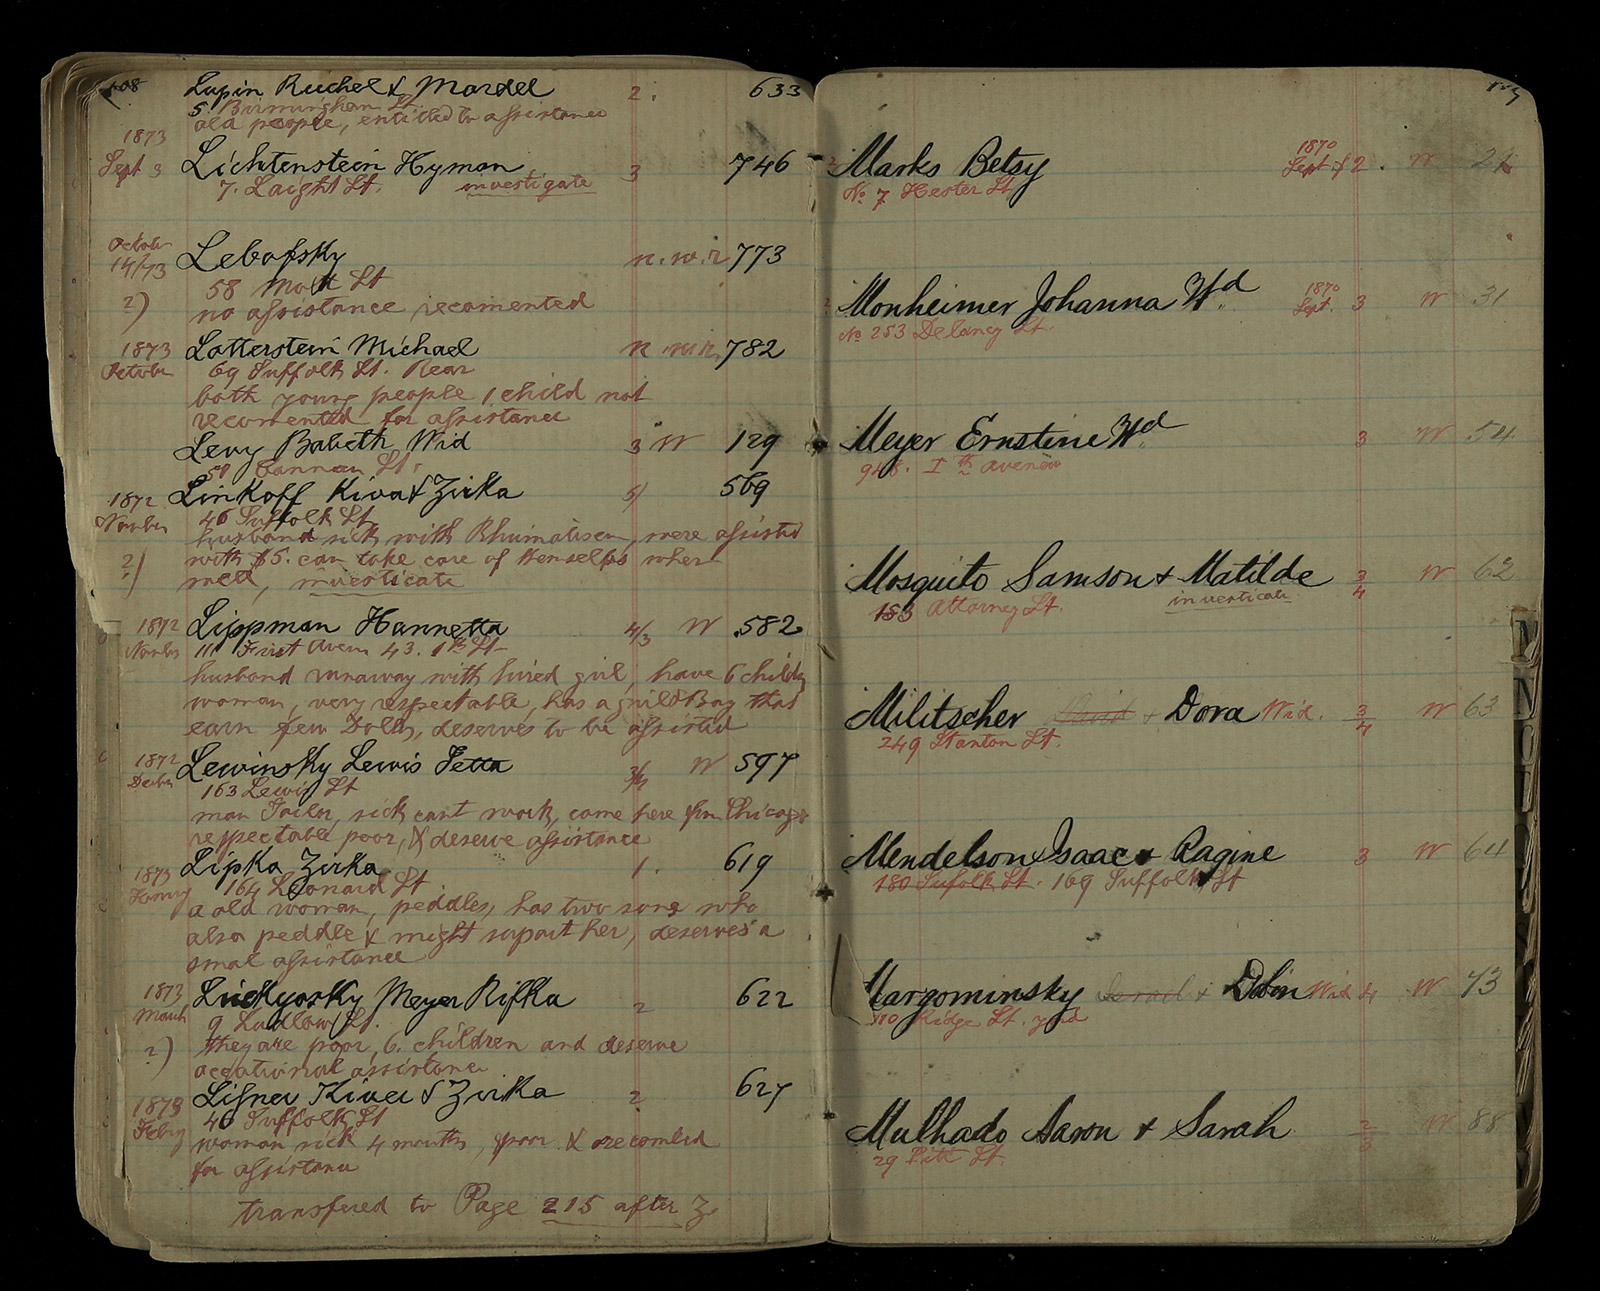 108
Lupin Ruchel & Mordel 2. 633
5 Birmingham St.
old people, entitled to assistance
1873
Sept 3 Lichtenstein Hyman 3 746
7. Laight St. investigate
October
14/73 Lebofsky n.w.r 773
58 Mott St
2) no assistance recomented
1873 Lotterstein Michael n w.r. 782
October 69 Suffolk St. Rear
both young people 1 child not
recomented for assistance
Levy Babeth Wid 3 W 129
51 Cannon St.
1872 Linkoff Kiva & Zirka 5) 569
November 46 Suffolk St
husband sick with Rhumatism, were assisted
2) with $5. can take care of themselfs when
well, investicate
1872 Lippman Hannetta 4/3 W 582
November 111 First Aven 43. 1th St
husband runaway with hired girl, have 6 childn
woman, very respectable, has a Boy that
earn few Dolls, deserves to be assisted
1872 Lewinsky Lewis Yetta 3/4 W 597
Decber 163 Lewis St
man Tailor, sick cant work, came here from Chicago
respectable poor, & deserve assistance
1873 Lipka Zirka 1. 619
164 Leonard St
a old woman, peddles, has two sons who
also peddle & might suport her, deserves a
smal assistance
1873 Luckyosky Meyer Rifka 2 622
March 9 Ludlow St.
2) they are poor, 6. children and deserve
acqational assistance
1873 Lisner Kiver & Zirka 2 627
Febry 40 Suffolk St
woman sick 4 months, poor & recomted
for assistance
transfered to Page 215 after Z
Marks Betsy 1870 Sept 2. W 24
No. 7 Hester St
Monheimer Johanna Wd 1870 Sept. 3 W 31
No 253 Delancy St.
Meyer Ernstine Wd 3 W 54
948. 1th avenue
Mosquito Samson & Matilde 3/4 W 62
183 Attorney St. investicate
Militscher David & Dora Wid. 3/4 W 63
249 Stanton St.
Mendelson Isaac & Ragine 3 W 64
180 Sufolk St. 169 Suffolk St
Margominsky Israel & Dobin Wid 4 W 73
110 Ridge St. yard
Mulhado Aaron & Sarah 2/3 W 88
29 Pitt St.
M
N